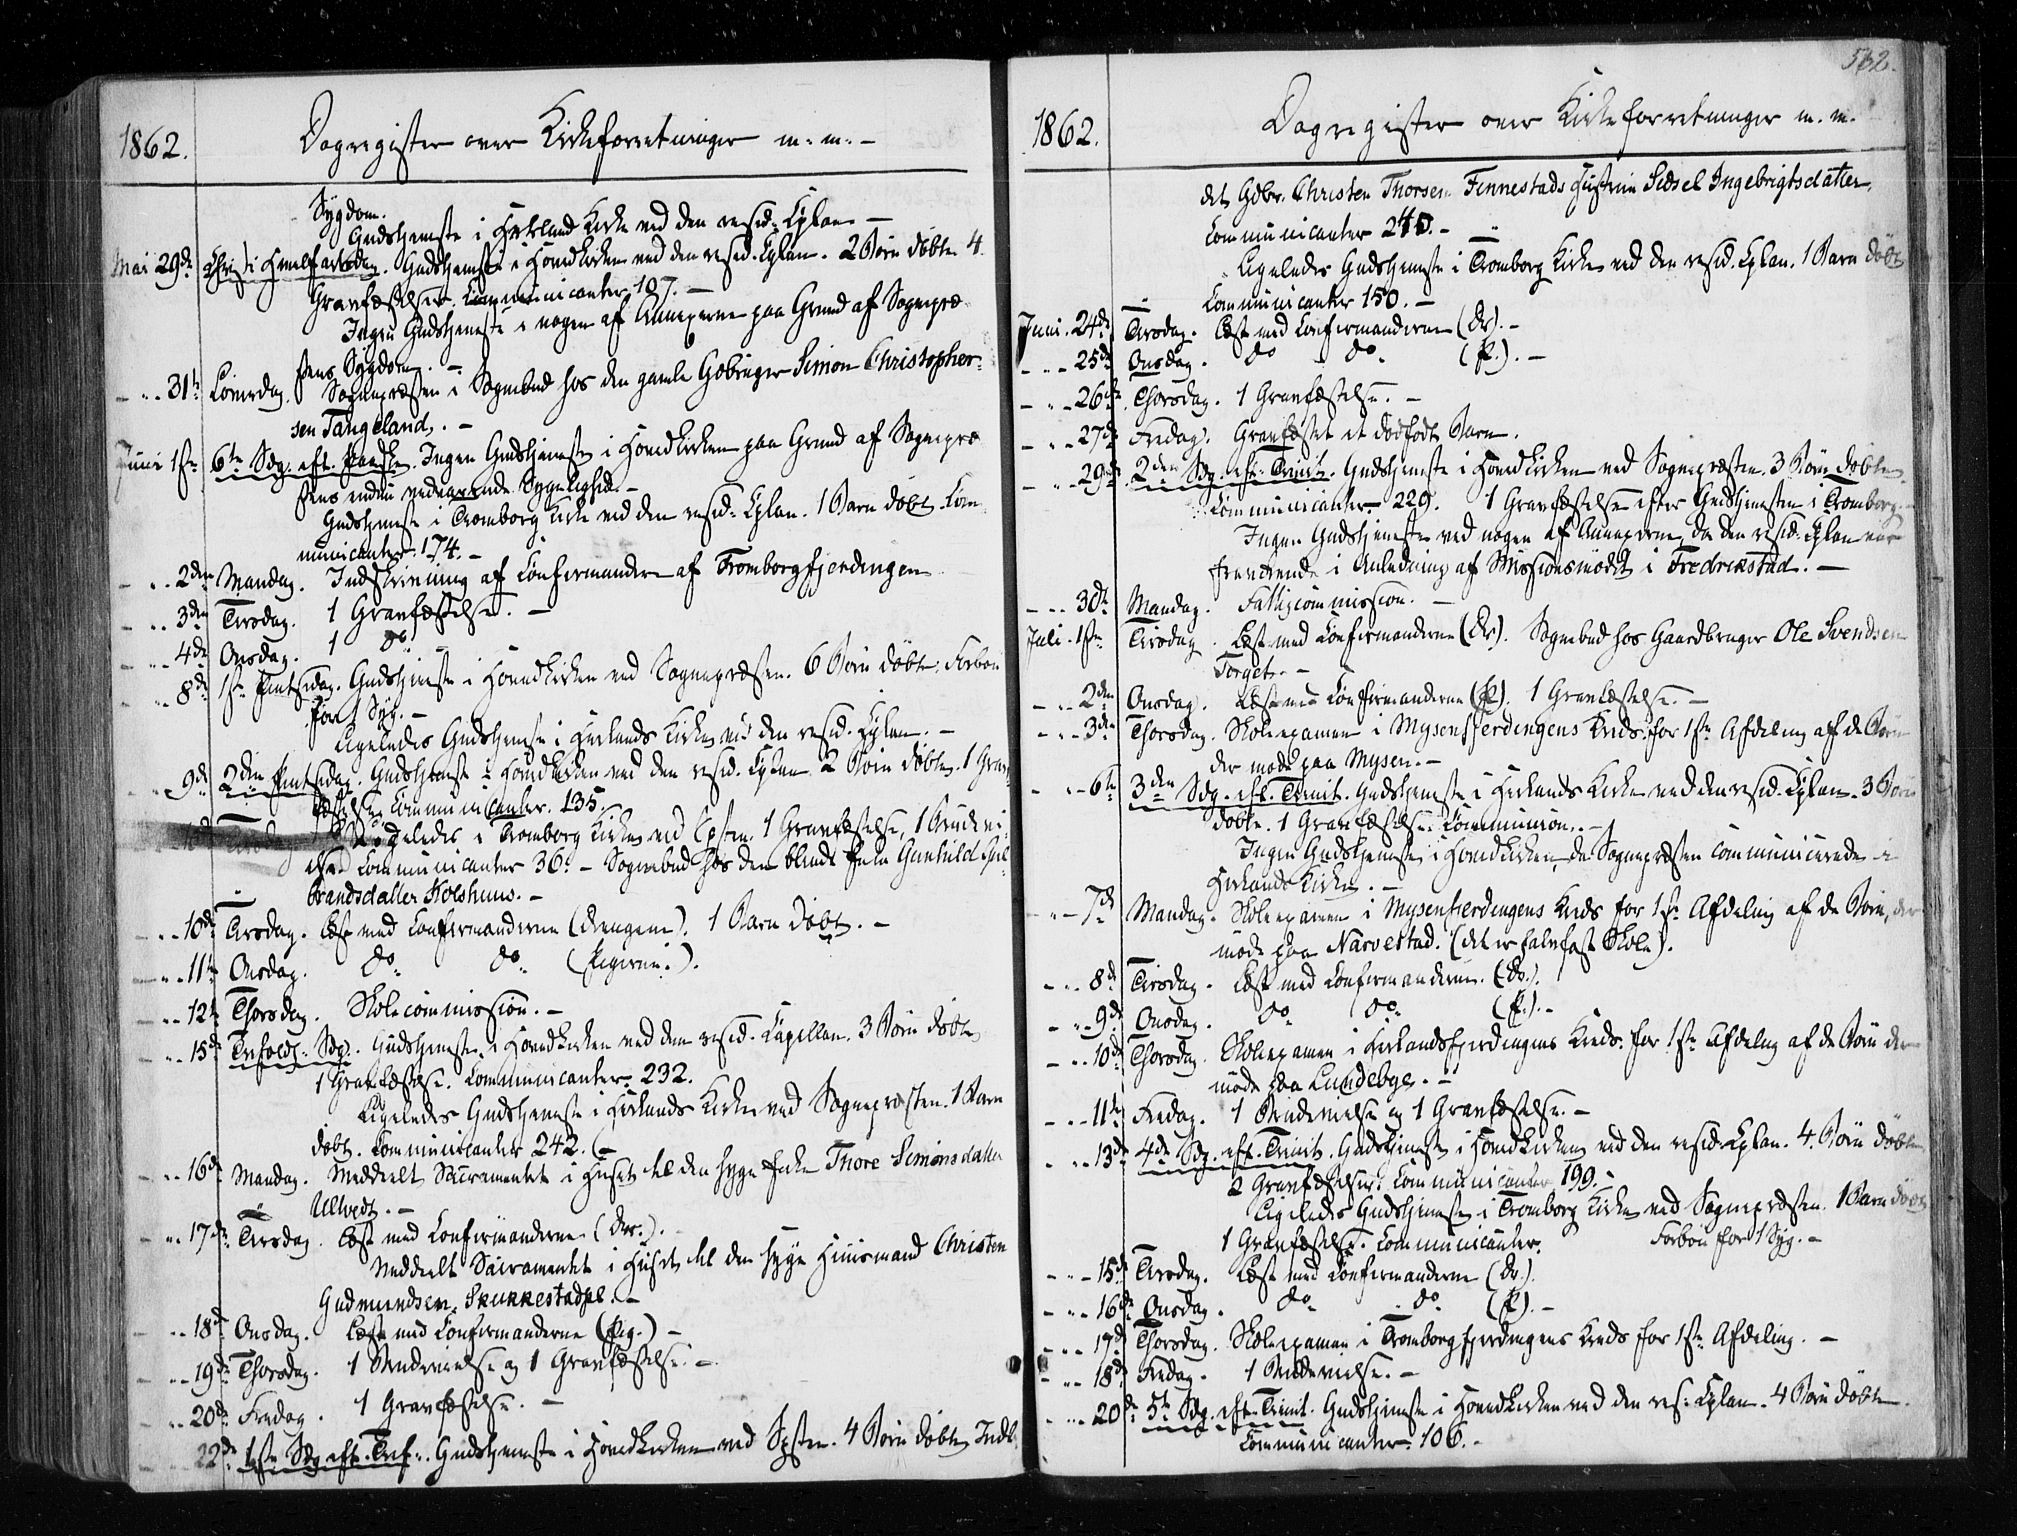 1862.
Dagregister over Kirkeforretninger m. m. –
Sygdom.
Gudstjeneste i Herland Kirke ved den resid: Cplan –
Mai 29de Christi Himelfartsdag. Gudstjeneste i Hovedkirken ved den resid. Cplan. 2 Børn døbte. 4
Gravfæstelser. Communicanter 107. –
Ingen Gudstjeneste i nogen af Annexerne paa Grund af Sognepræ
stens Sygdom. –
– „ 31te Løverdag. Sognepræsten i Sognebud hos den gamle Gbruger Simon Christopher-
sen Tangeland. –
Juni 1ste 6te Sdg. eft. Paaske. Ingen Gudstjeneste i Hovedkirken paa Grund af Sognepræ
stens endnu vedvarende Sygelighed. –
Gudstjeneste i Tromborg Kirke ved den resid: Cplan. 1 Barn døbt. Com
municanter 174. –
– „ 2den Mandag. Indskrivning af Confirmander af Tromborgfjerdingen
– „ 3die Tirsdag. 1 Gravfæstelse. –
– „ 4de Onsdag. 1 do
„ 8de 1ste Pintsedag. Gudstjeneste i Hovedkirken ved Sognepræsten. 6 Børn døbte. Forbøn
for 1 Syg. –
Ligeledes Gudstjeneste i Herlands Kirke ved den resid. Cplan. –
9de 2den Pintsedag. Gudstjeneste i Hovedkirken ved den resid. Cplan 2 Børn døbte. 1 Grav
fæstelse. Communicanter. 135.
10de Tirsdag Ligeledes i Tromborg Kirke ved Spsten. 1 Gravfæstelse, 1 Brudevi-
else Communicanter 36. – Sognebud hos den blinde Enke Gunhild Gul-
brandsdatter Kolshuus. –
– „ 10de Tirsdag. Læst med Confirmanderne (Drengene). 1 Barn døbt. –
– „ 11te Onsdag. do do (Pigerne).
– „ 12te Thorsdag. Skolecommission. –
„ 15de Trefoldg. Sdg. Gudstjeneste i Hovedkirken ved den resid. Capellan. 3 Børn døbte
1 Gravfæstelse. Communicanter. 232.
Ligeledes Gudstjeneste i Herlands Kirke ved Sognepræsten. 1 Barn
døbt. Communicanter 242. –
„ 16de Mandag. Meddeelt Sacramentet i Huset til den syge Enke Thore Simonsdatter
Ullvedt. –
„ 17de Tirsdag. Læst med Confirmanderne (Dr.).
Meddeelt Sacramentet i Huset til den syge Huusmand Christen
Gudmundsen, Skukkestadpl. –
„ 18de Onsdag. Læst med Confirmanderne (Pig.) –
„ 19de Thorsdag. 1 Brudevielse og 1 Gravfæstelse. –
„ 20de Fredag. 1 Gravfæstelse. –
22de 1ste Sdg. eft. Tref. Gudstjeneste i Hovedkirken ved Spsten. 4 Børn døbte, Indl.
1862.
Dagregister over Kirkeforretninger m. m.
det Gdbr. Christen Thorsen Finnestads Hustrue Sidsel Ingebrigtsdatter,
Communicanter 240. –
Ligeledes Gudstjeneste i Tromborg Kirke ved den resid. Cplan. 1 Barn døbt
Communicanter 150. –
Juni 24de Tirsdag. Læst med Confirmanderne (Dr). –
– „ 25de Onsdag. do do (P.). –
– „ 26de Thorsdag. 1 Gravfæstelse. –
– „ 27de Fredag. Gravfæstet et dødfødt Barn.
– „ 29de 2den Sdg. eft. Trinit. Gudstjeneste i Hovedkirken ved Sognepræsten. 3 Børn døbte.
Communicanter 229. 1 Gravfæstelse efter Gudstjenesten i Tromborg. –
Ingen Gudstjeneste ved nogen af Annexerne, da den resid. Cplan var
fraværende i Anledning af Missionsmødet i Fredrikstad. –
– „ 30te Mandag. Fattigcommission. –
Juli 1ste Tirsdag. Læst med Confirmanderne (Dr). Sognebud hos Gaardbruger Ole Svendsen
Torget. –
– „ 2den Onsdag. Læst med Confirmanderne (P.). 1 Gravfæstelse. –
– „ 3die Thorsdag. Skoleexamen i Mysenfjerdingens Kreds for 1ste Afdeling af de Børn
der møde paa Mysen. –
– „ 6te 3die Sdg. eft. Trinit. Gudstjeneste i Herlands Kirke ved den resid. Cplan. 3 Børn
døbte. 1 Gravfæstelse. Communion. –
Ingen Gudstjeneste i Hovedkirken, da Sognepræsten communicerede i
Herlands Kirke. –
– „ 7de Mandag. Skoleexamen i Mysenfjerdingens Kreds for 1ste Afdeling af de Børn, der
møde paa Narvestad. (det er halvfast Skole).
– „ 8de Tirsdag. Læst med Confirmanderne. (Dr.).
– „ 9de Onsdag. do do (P.). –
– „ 10de Thorsdag. Skoleexamen i Herlandsfjerdingens Kreds. for 1ste Afdeling af de Børn der
møde paa Lundebye. –
– „ 11te Fredag. 1 Brudevielse og 1 Gravfæstelse. –
– „ 13de 4de Sdg. eft. Trinit. Gudstjeneste i Hovedkirken ved den resid. Cplan. 4. Børn døbte
2 Gravfæstelser. Communicanter 199. –
Ligeledes Gudstjeneste i Tromborg Kirke ved Sognepræsten. 1 Barn døbt
1 Gravfæstelse. Communicanter. Forbøn for 1 Syg. –
– „ 15de Tirsdag. Læst med Confirmanderne (Dr.).
– „ 16de Onsdag. do do (P.). –
– „ 17de Thorsdag. Skoleexamen i Tromborgfjerdingens Kreds for 1ste Afdeling. –
– „ 18de Fredag. 1 Brudevielse. –
– „ 20de 5te Sdg. eft. Trinit. Gudstjeneste i Hovedkirken ved den res: Cplan. 4 Børn døbte.
Communicanter 106. –